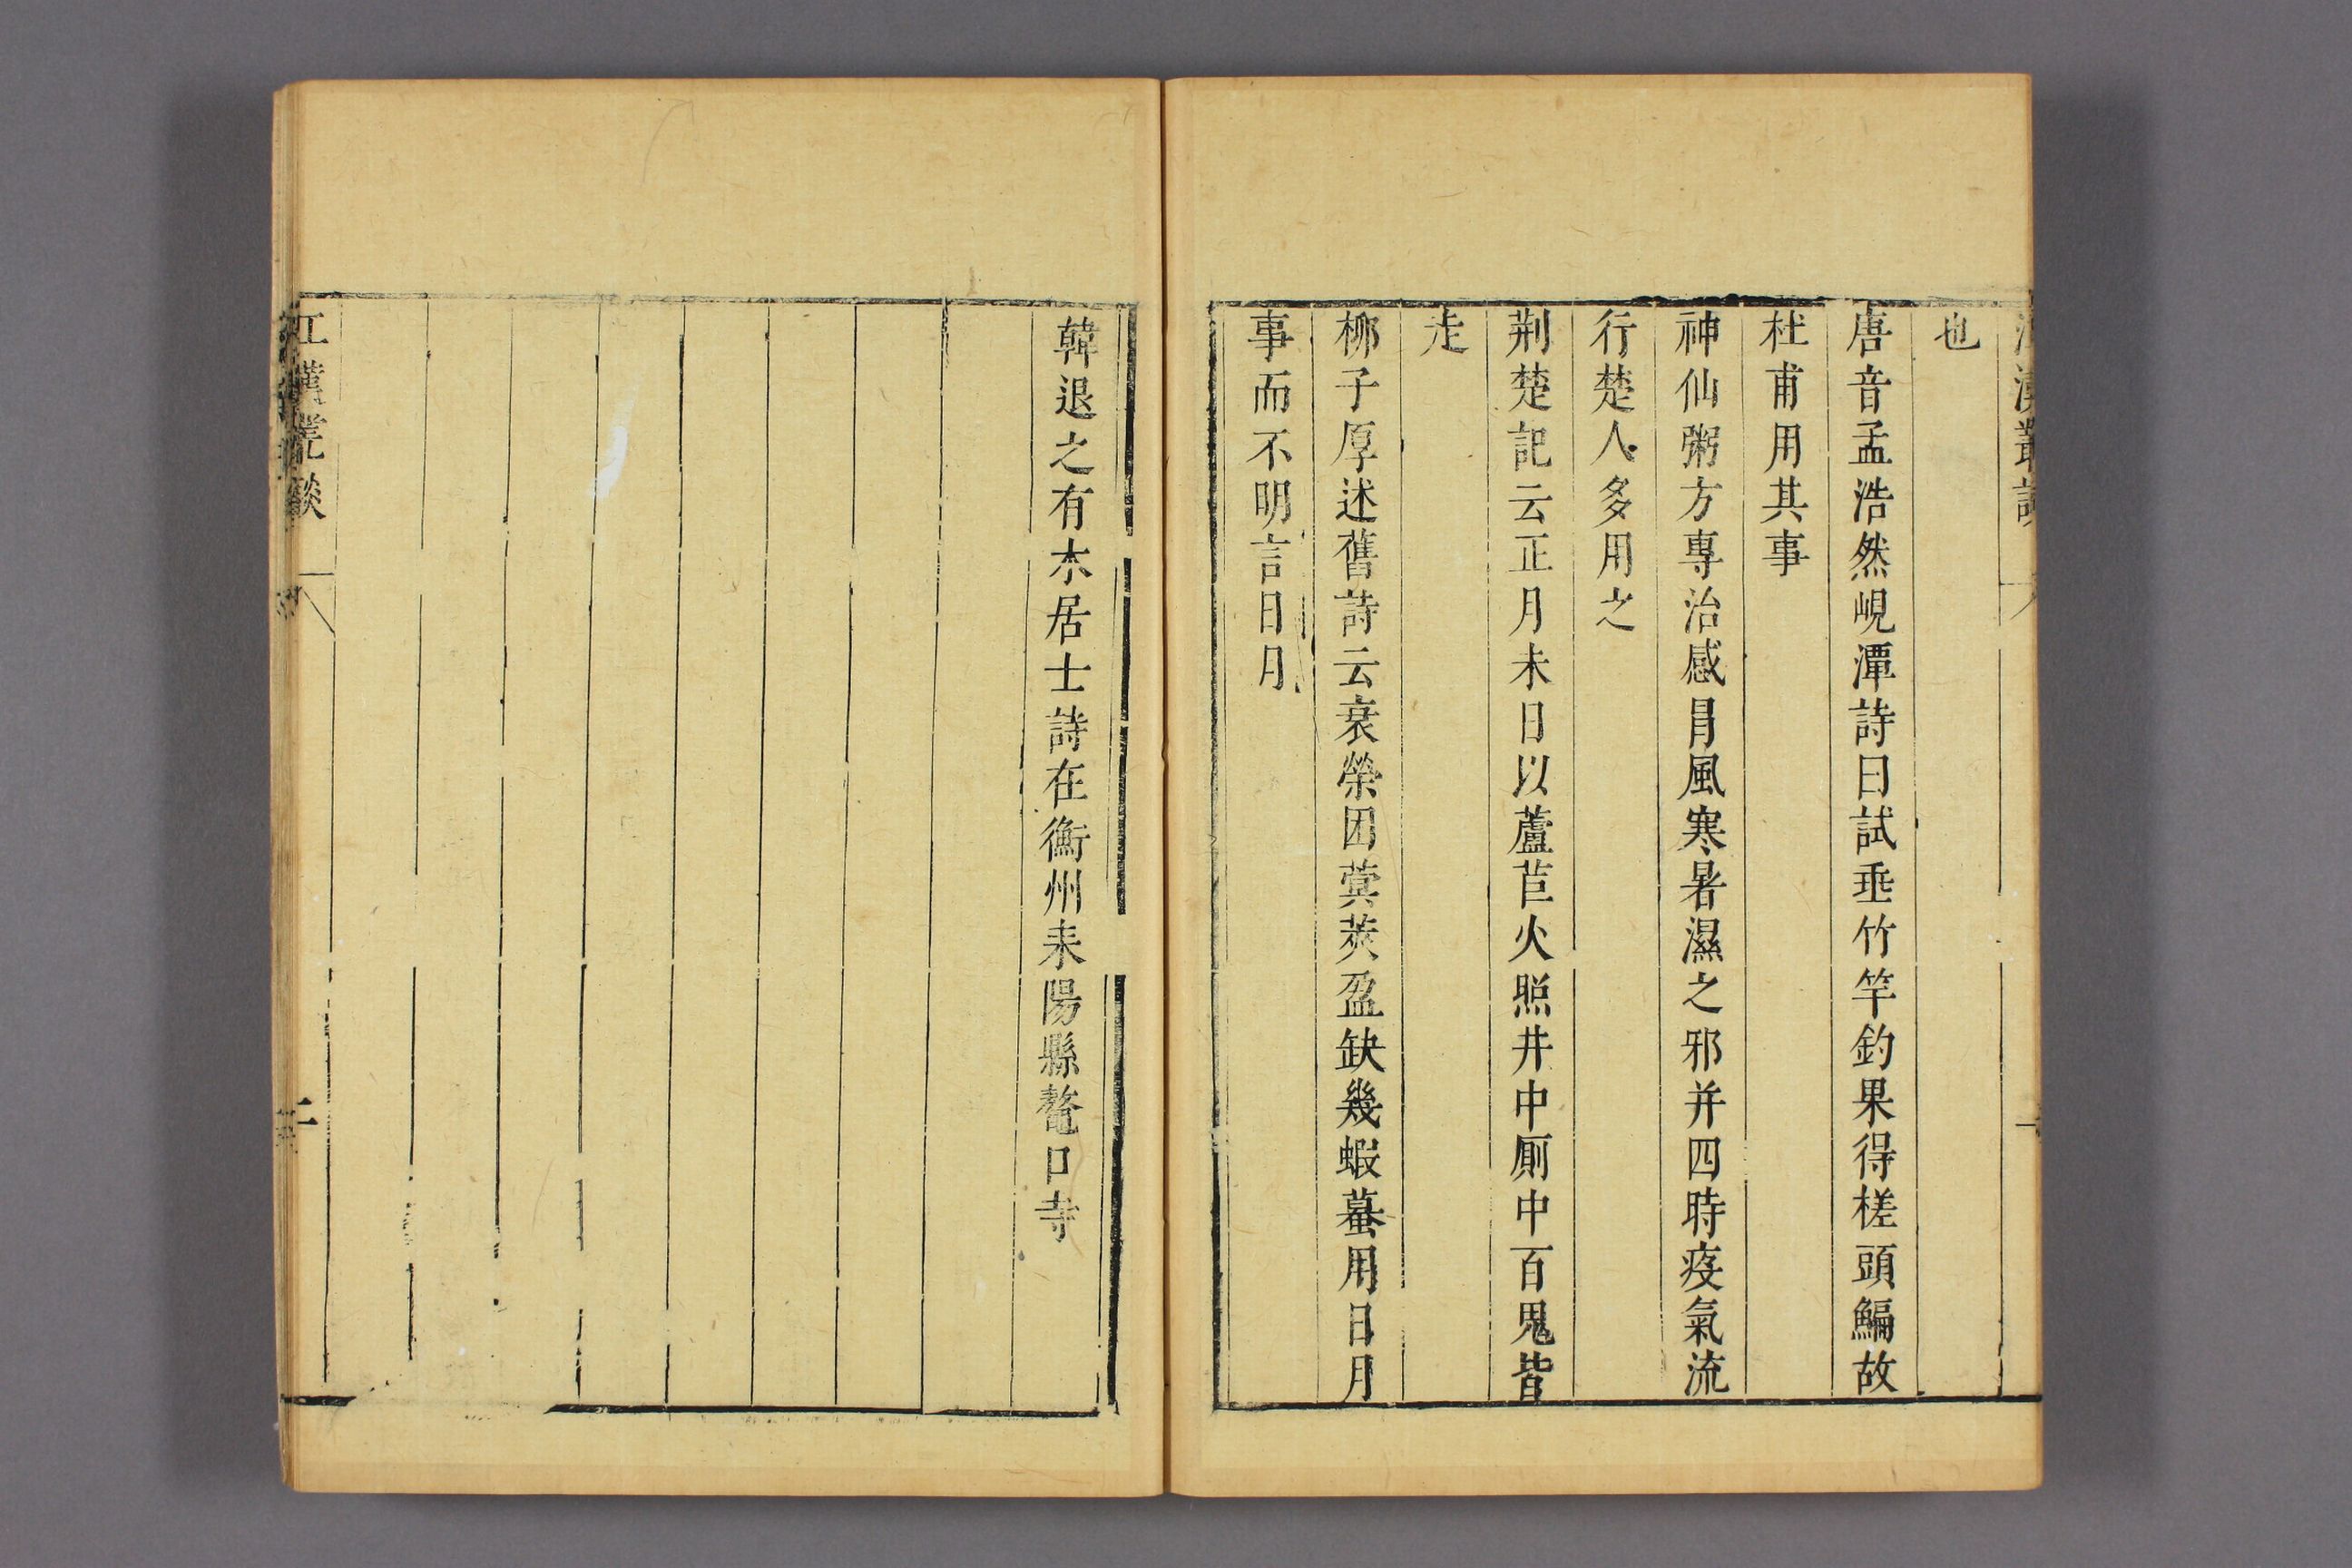 江漢叢談
也
唐音孟浩然峴潭詩曰試垂竹竿釣果得槎頭鯿故
杜甫用其事
神仙粥方專治感冐風寒暑濕之邪并四時疫氣流
行楚人多用之
荊楚記云正月未日以蘆苣火照井中厠中百鬼皆
走
柳子厚述舊詩云衰榮因蓂莢盈缺幾蝦蟇用日月
事而不明言日月
韓退之有木居士詩在衡州耒陽縣鼇口寺
江漢叢談
二